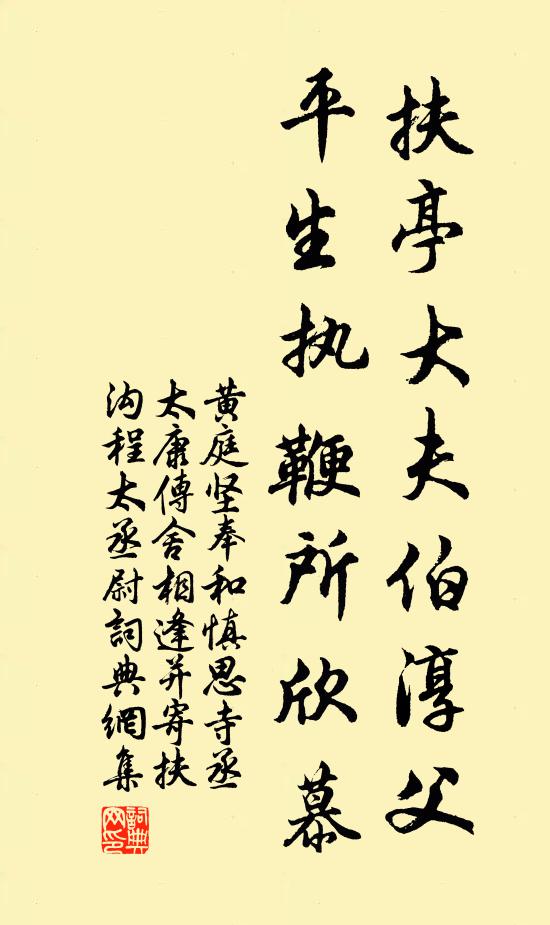 扶亭大夫伯淳父
平生执鞭所欣慕
黄庭坚奉和慎思寺丞
太康傳舍相逢并寄扶
沟程太丞尉詞典網集
詞典網印